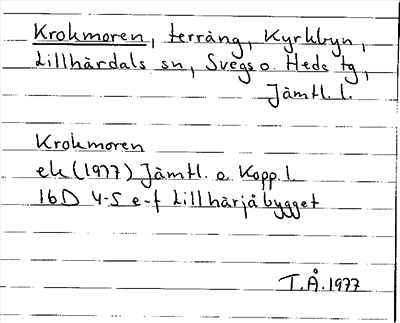 Krokmoren, terräng, Kyrkbyn,
Lillhärdals sn, Svegs o. Hede tg,
Jämtl. l.
Krokmoren
ek (1977) Jämtl. o Kopp. l.
16D 4-5 e-f Lillhärjåbygget
T.Å. 1977